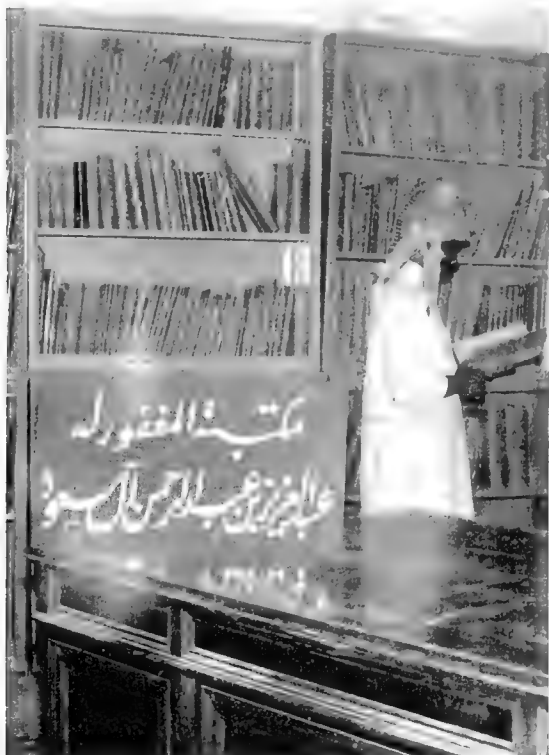 مكتبة المغفور له
عبد العزيز بن عبد الرحمن آل سعود